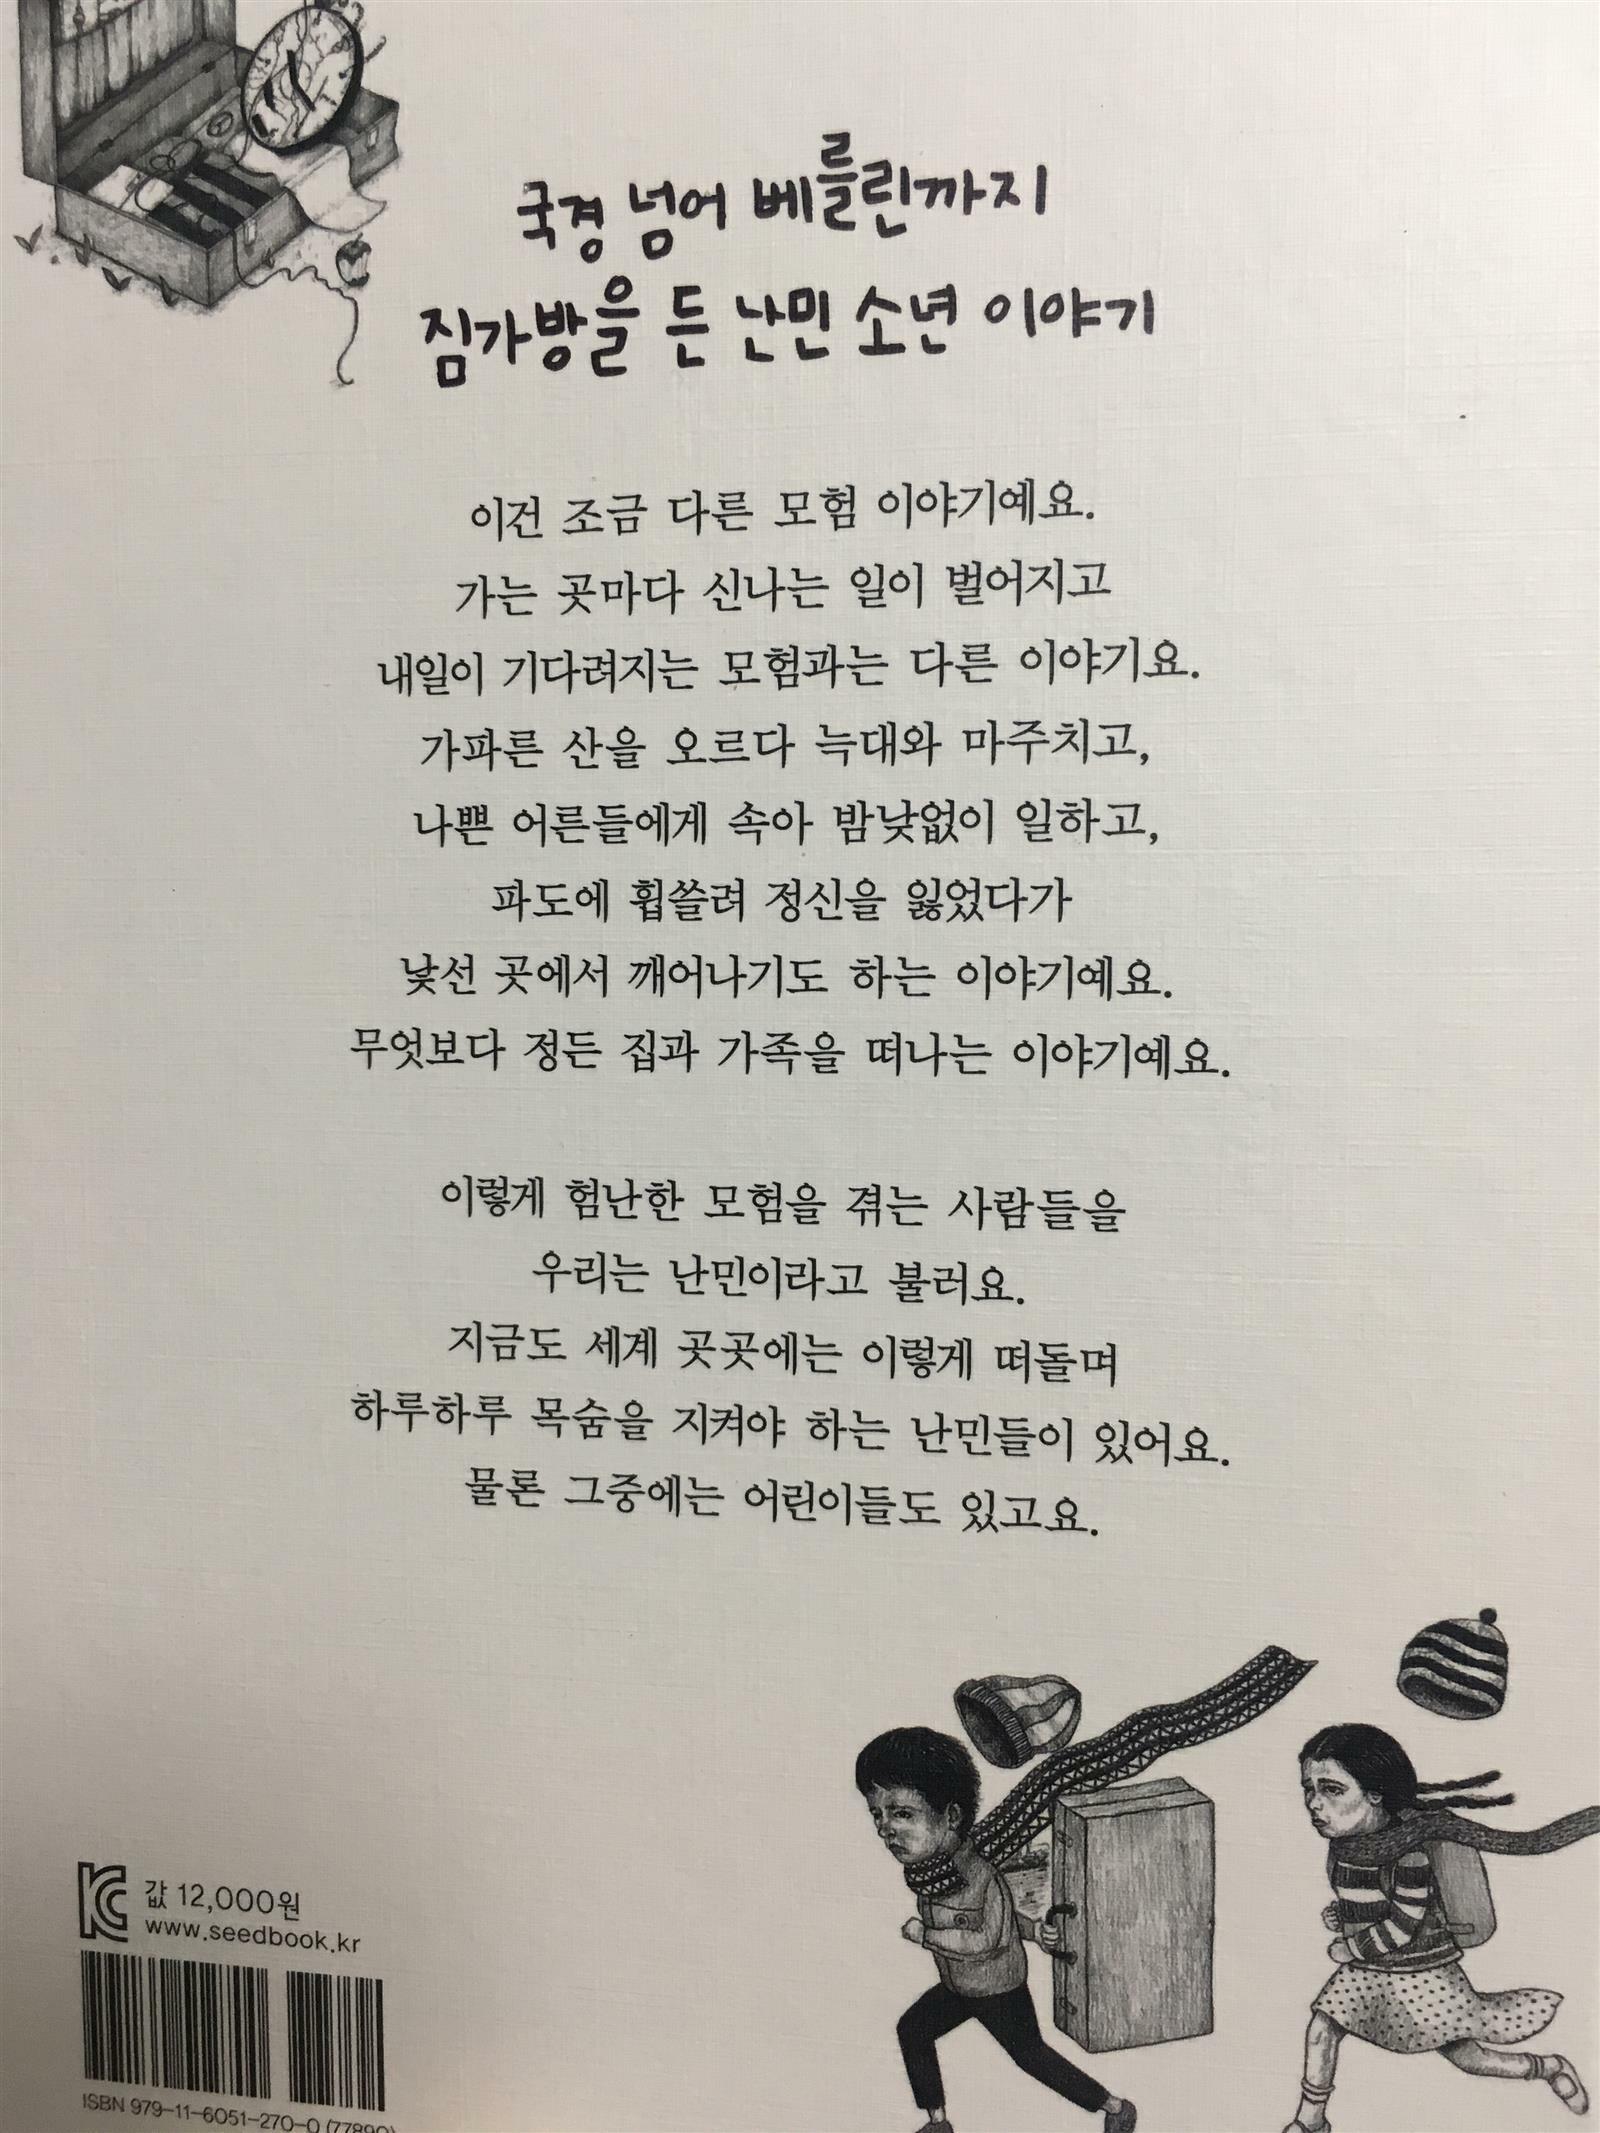 국경 넘어 베를린까지
짐가방을 든 난민 소년 이야기
이건 조금 다른 모험 이야기예요.
가는 곳마다 신나는 일이 벌어지고
내일이 기다려지는 모험과는 다른 이야기요.
가파른 산을 오르다 늑대와 마주치고,
나쁜 어른들에게 속아 밤낮없이 일하고,
파도에 휩쓸려 정신을 잃었다가
낯선 곳에서 깨어나기도 하는 이야기예요.
무엇보다 정든 집과 가족을 떠나는 이야기예요.
이렇게 험난한 모험을 겪는 사람들을
우리는 난민이라고 불러요.
지금도 세계 곳곳에는 이렇게 떠돌며
하루하루 목숨을 지켜야 하는 난민들이 있어요.
물론 그중에는 어린이들도 있고요.
KC 값 12,000원
www.seedbook.kr
ISBN 979-11-6051-270-0 (77890)